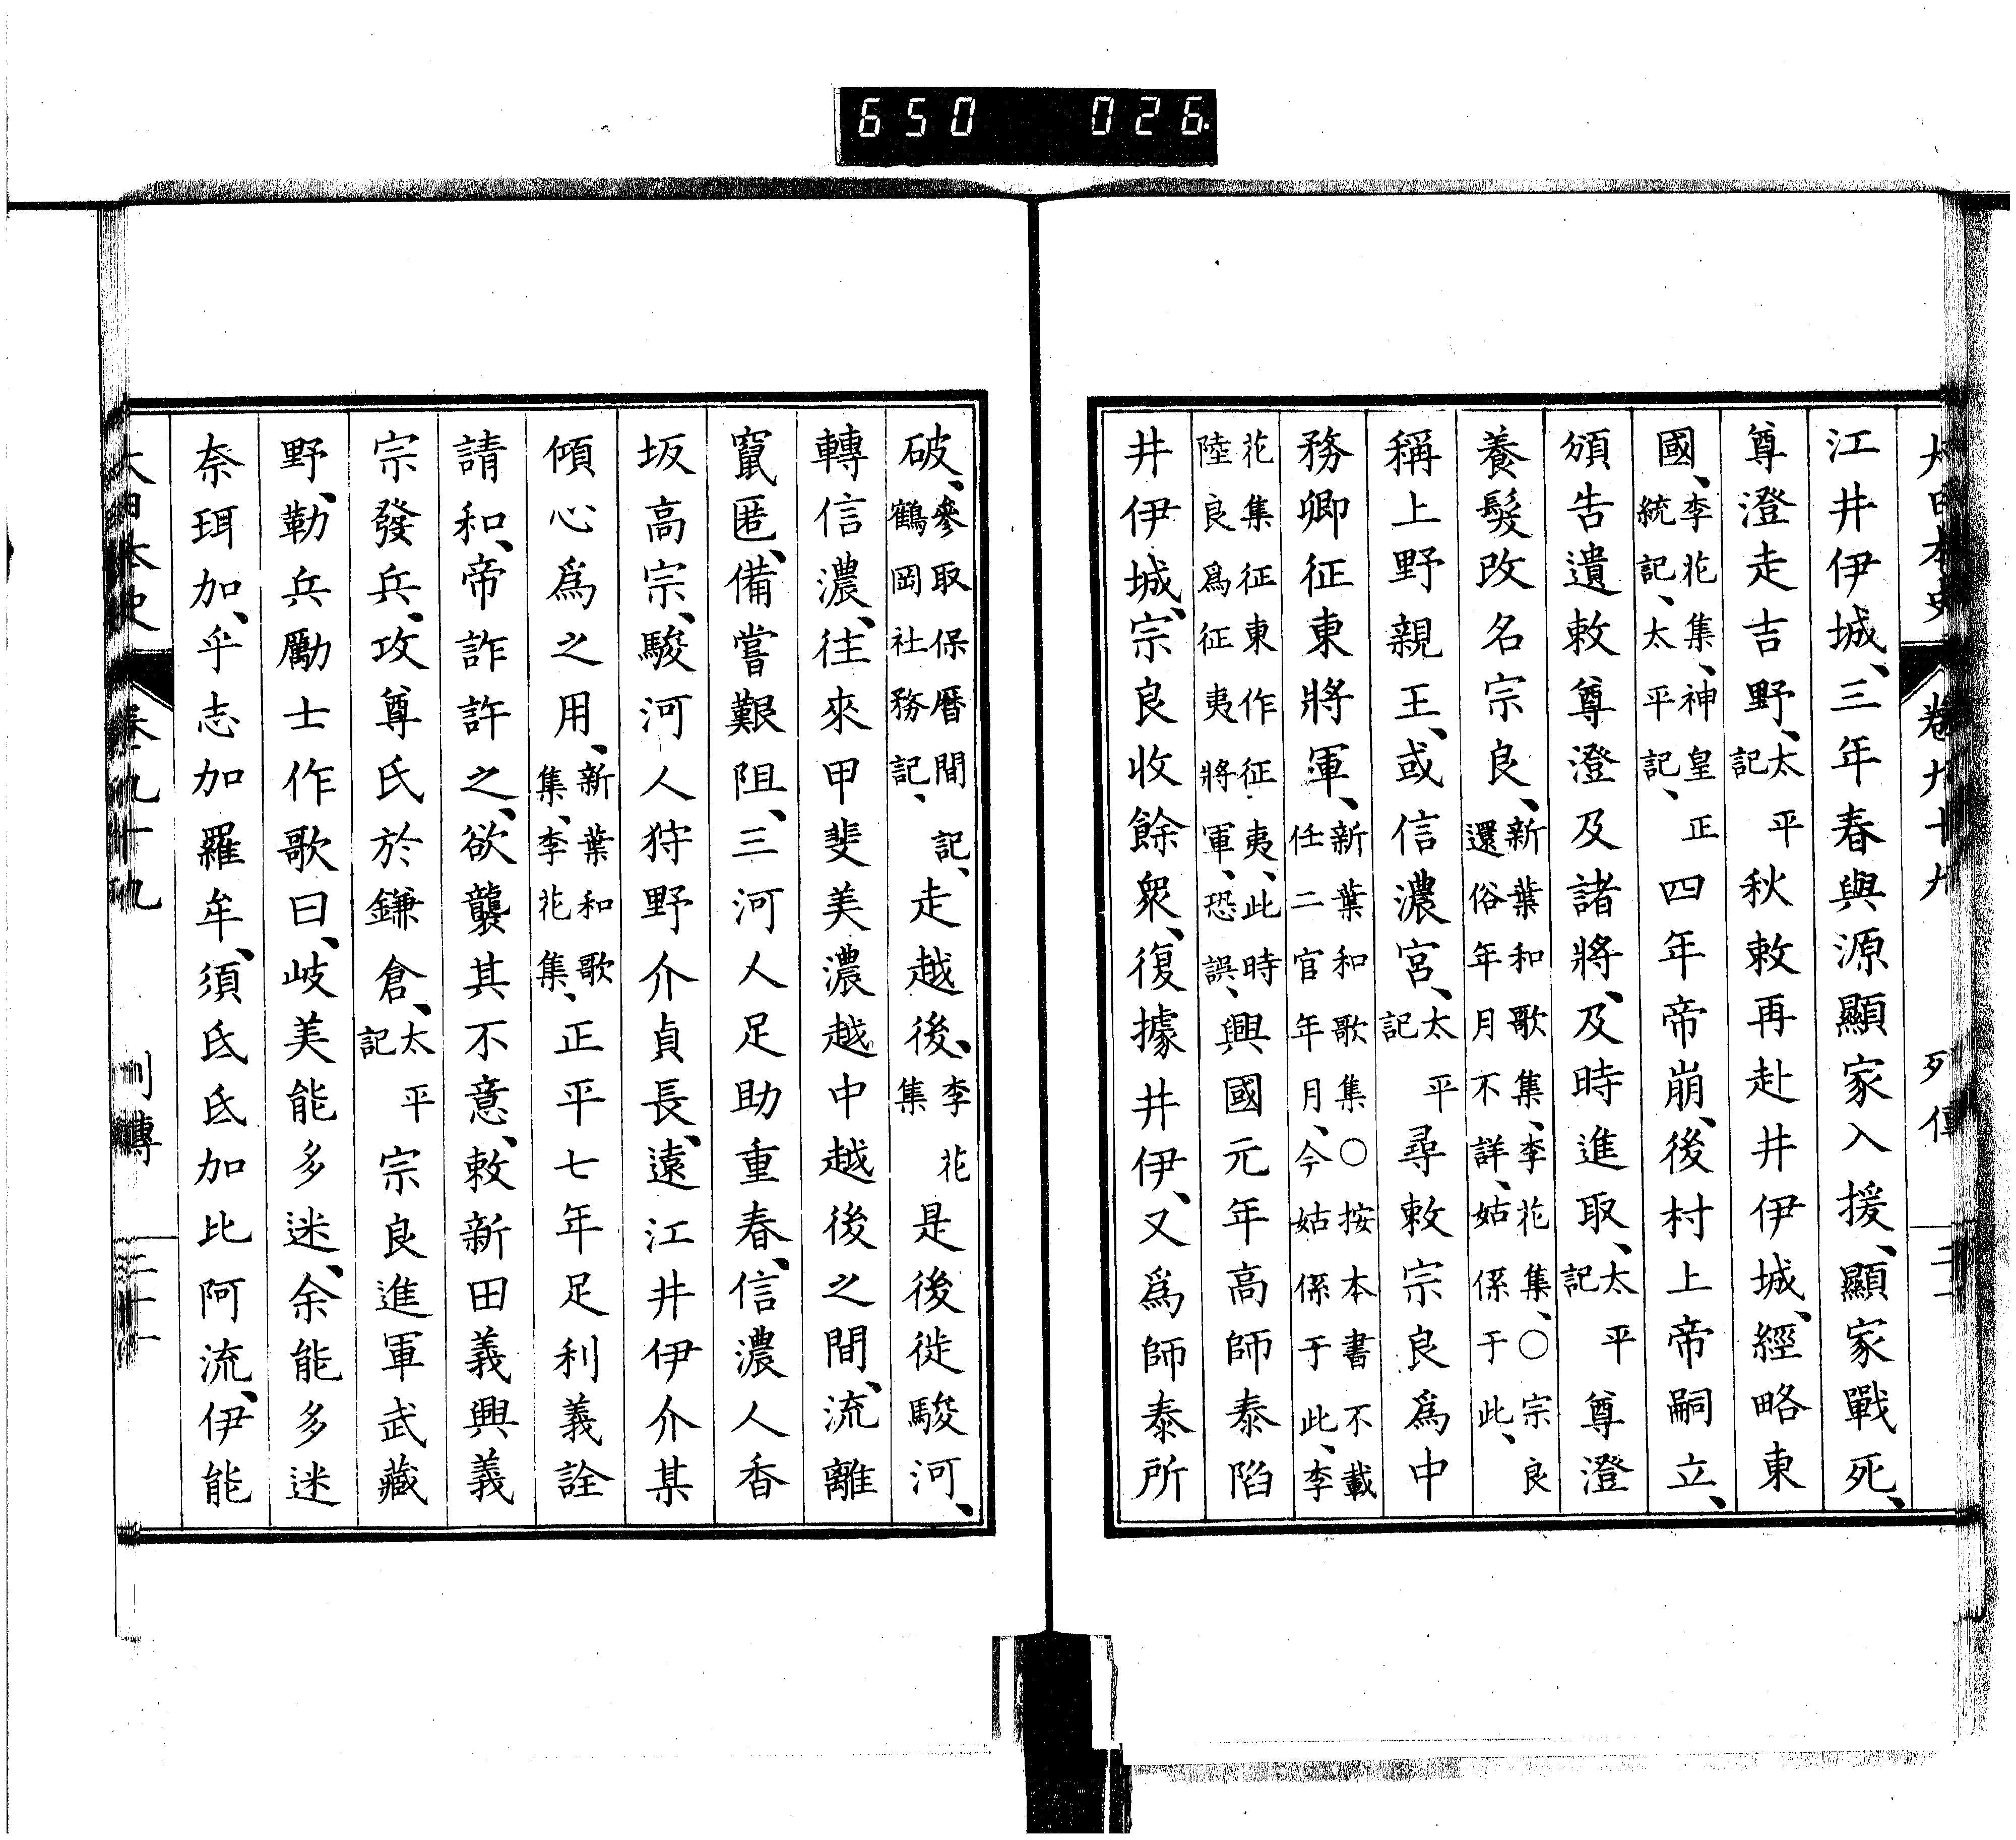 650 026
大日本史 卷九十九 列傳
江井伊城、三年春與源顯家入援、顯家戰死、
尊澄走吉野、太平記秋敕再赴井伊城、經略東
國、李花集、神皇正統記、太平記、四年帝崩、後村上帝嗣立、
頒告遺敕尊澄及諸將、及時進取、太平記尊澄
養髮改名宗良、新葉和歌集、李花集、○宗良還俗年月不詳、姑係于此、
稱上野親王、或信濃宮、太平記尋敕宗良爲中
務卿征東將軍、新葉和歌集○按本書不載任二官年月、今姑係于此、李
花集征東作征夷、此時陸良爲征夷將軍、恐誤、興國元年高師泰陷
井伊城、宗良收餘衆、復據井伊、又爲師泰所
破、參取保曆間記、鶴岡社務記、走越後、李花集是後徙駿河、
轉信濃、往來甲斐美濃越中越後之間、流離
竄匿、備嘗艱阻、三河人足助重春、信濃人香
坂高宗、駿河人狩野介貞長、遠江井伊介某
傾心爲之用、新葉和歌集、李花集、正平七年足利義詮
請和、帝詐許之、欲襲其不意、敕新田義興義
宗發兵、攻尊氏於鎌倉、太平記宗良進軍武藏
野、勒兵勵士作歌曰、岐美能多迷、余能多迷
奈珥加、乎志加羅牟、須氐氐加比阿流、伊能
大日本史 卷九十九 列傳